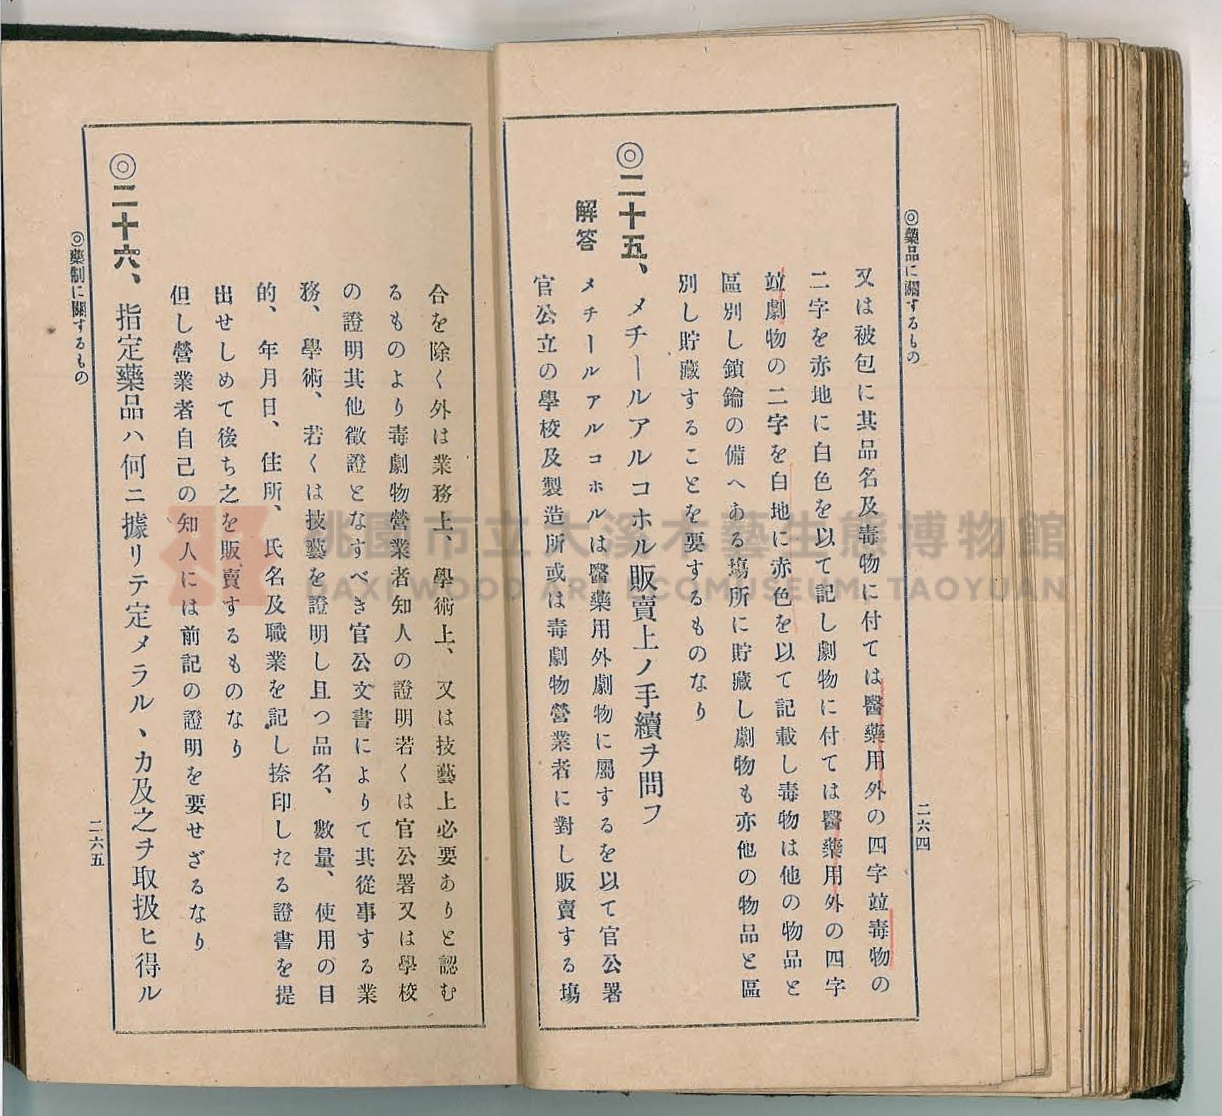 ◎藥品に關するもの
二六四
又は被包に其品名及毒物に付ては醫藥用外の四字竝毒物の
二字を赤地に白色を以て記し劇物に付ては醫藥用外の四字
竝劇物の二字を白地に赤色を以て記載し毒物は他の物品と
區別し鎖鑰の備へある塲所に貯藏し劇物も亦他の物品と區
別し貯藏することを要するものなり
◎二十五、メチールアルコホル販賣上ノ手續ヲ問フ
解答 メチールアルコホルは醫藥用外劇物に屬するを以て官公署
官公立の學校及製造所或は毒劇物營業者に對し販賣する塲
合を除く外は業務上、學術上、又は技藝上必要ありと認む
るものより毒劇物營業者知人の證明若くは官公署又は學校
の證明其他徵證となすべき官公文書によりて其從事する業
務、學術、若くは技藝を證明し且つ品名、數量、使用の目
的、年月日、住所、氏名及職業を記し捺印したる證書を提
出せしめて後ち之を販賣するものなり
但し營業者自己の知人には前記の證明を要せざるなり
◎二十六、指定藥品ハ何ニ據リテ定メラルヽカ及之ヲ取扱ヒ得ル
◎藥制に關するもの
二六五
桃園市立大溪木藝生態博物館
DAXI WOOD ART ECOMUSEUM, TAOYUAN